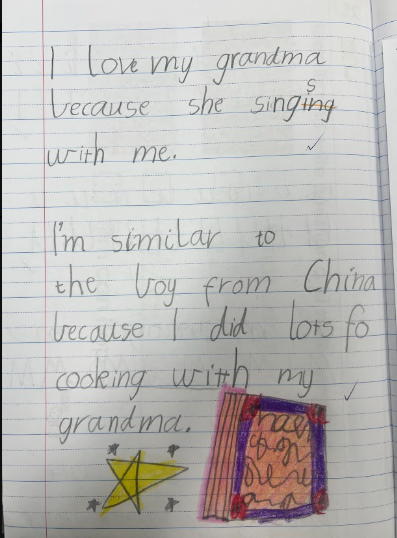 I love my grandma
because she sings
with me.
I'm similar to
the boy from China
because I did lots fo
cooking with my
grandma.